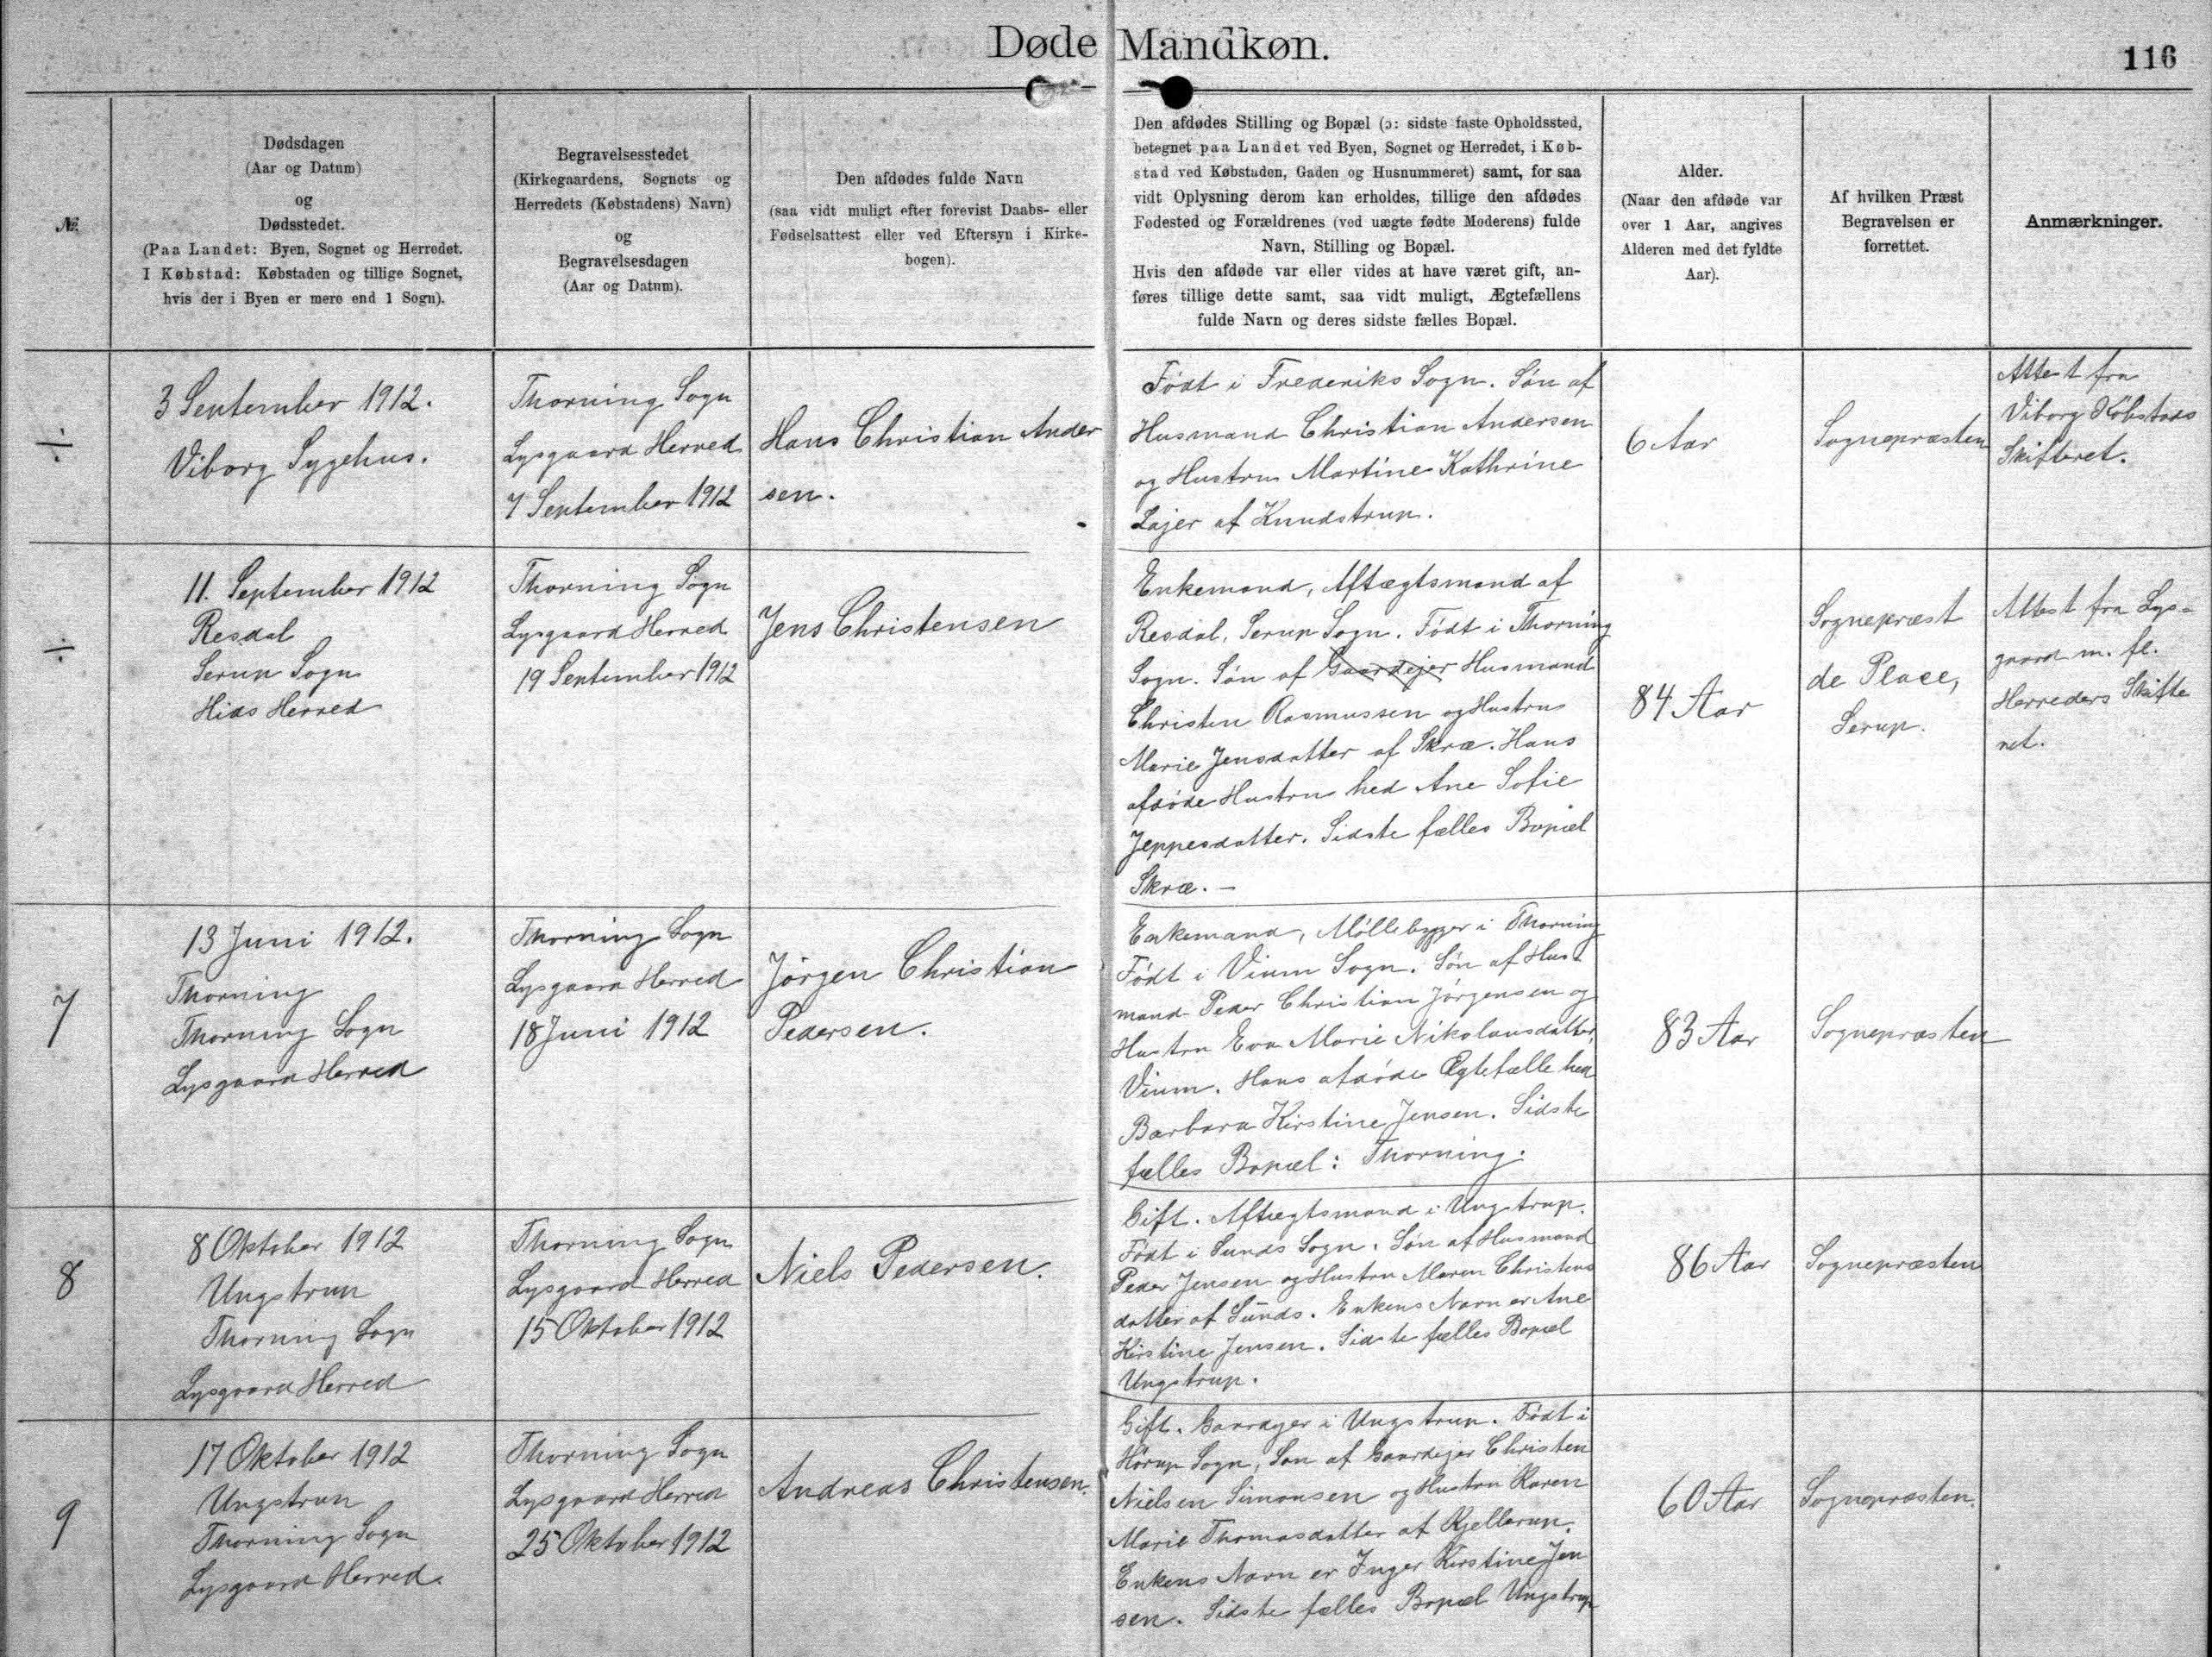 Døde Mandkøn.
116
№
Dødsdagen
(Aar og Datum)
og
Dødsstedet.
(Paa Landet: Byen, Sognet og Herredet.
I Købstad: Købstaden og tillige Sognet,
hvis der i Byen er mere end 1 Sogn).
Begravelsesstedet
(Kirkegaardens, Sognets og
Herredets (Købstadens) Navn)
og
Begravelsesdagen
(Aar og Datum).
Den afdødes fulde Navn
(saa vidt muligt efter forevist Daabs- eller
Fødselsattest eller ved Eftersyn i Kirke-
bogen).
Den afdødes Stilling og Bopæl (ɔ: sidste faste Opholdssted,
betegnet paa Landet ved Byen, Sognet og Herredet, i Køb-
stad ved Købstaden, Gaden og Husnummeret) samt, for saa
vidt Oplysning derom kan erholdes, tillige den afdødes
Fødested og Forældrenes (ved uægte fødte Moderens) fulde
Navn, Stilling og Bopæl.
Hvis den afdøde var eller vides at have været gift, an-
føres tillige dette samt, saa vidt muligt, Ægtefællens
fulde Navn og deres sidste fælles Bopæl.
Alder.
(Naar den afdøde var
over 1 Aar, angives
Alderen med det fyldte
Aar).
Af hvilken Præst
Begravelsen er
forrettet.
Anmærkninger.
÷
3 September 1912.
Viborg Sygehus.
Thorning Sogn
Lysgaard Herred
7 September 1912
Hans Christian Ander
sen.
Født i Frederiks Sogn. Søn af
Husmand Christian Andersen
og Hustru Martine Kathrine
Lajer af Knudstrup.
6 Aar
Sognepræsten
Attest fra
Viborg Købstads
Skifteret.
÷
11. September 1912
Resdal
Serup Sogn
Hids Herred
Thorning Sogn
Lysgaard Herred
19 September 1912
Jens Christensen
Enkemand, Aftægtsmand af
Resdal, Serup Sogn. Født i Thorning
Sogn. Søn af Gaardejer Husmand
Christen Rasmussen og Hustru
Marie Jensdatter af Skræ. Hans
afdøde Hustru hed Ane Sofie
Jeppesdatter. Sidste fælles Bopæl
Skræ. -
84 Aar
Sognepræst
de Place,
Serup.
Attest fra Lys-
gaard m. fl.
Herreders Skifte
ret.
7
13 Juni 1912.
Thorning
Thorning Sogn
Lysgaard Herred
Thorning Sogn
Lysgaard Herred
18 Juni 1912
Jørgen Christian
Pedersen.
Enkemand, Møllebygger i Thorning
Født i Vium Sogn. Søn af Hus-
mand Peder Christian Jørgensen og
Hustru Eva Marie Nikolausdatter,
Vium. Hans afdøde Ægtefælle hed
Barbara Kirstine Jensen. Sidste
fælles Bopæl: Thorning.
83 Aar
Sognepræsten
8
8 Oktober 1912
Ungstrup
Thorning Sogn
Lysgaard Herred
Thorning Sogn
Lysgaard Herred
15 Oktober 1912
Niels Pedersen.
Gift. Aftægtsmand i Ungstrup.
Født i Sunds Sogn. Søn af Husmand
Peder Jensen og Hustru Maren Christens
datter af Sunds. Enkens Navn er Ane
Kirstine Jensen. Sidste fælles Bopæl
Ungstrup.
86 Aar
Sognepræsten
9
17 Oktober 1912
Ungstrup
Thorning Sogn
Lysgaard Herred.
Thorning Sogn
Lysgaard Herred
25 Oktober 1912
Andreas Christensen.
Gift. Gaardejer i Ungstrup. Født i
Hørup Sogn, Søn af Gaardejer Christen
Nielsen Simonsen og Hustru Karen
Marie Thomasdatter af Kjellerup.
Enkens Navn er Inger Kirstine Jen
sen. Sidste fælles Bopæl Ungstrup
60 Aar
Sognepræsten.